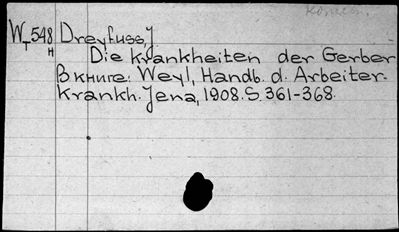 W 548 Dreyfuss J
T H
Die Krankheiten der Gerber
В книге: Weyl, Handb. d. Arbeiter-
krankh. Jena, 1908. S. 361-368.